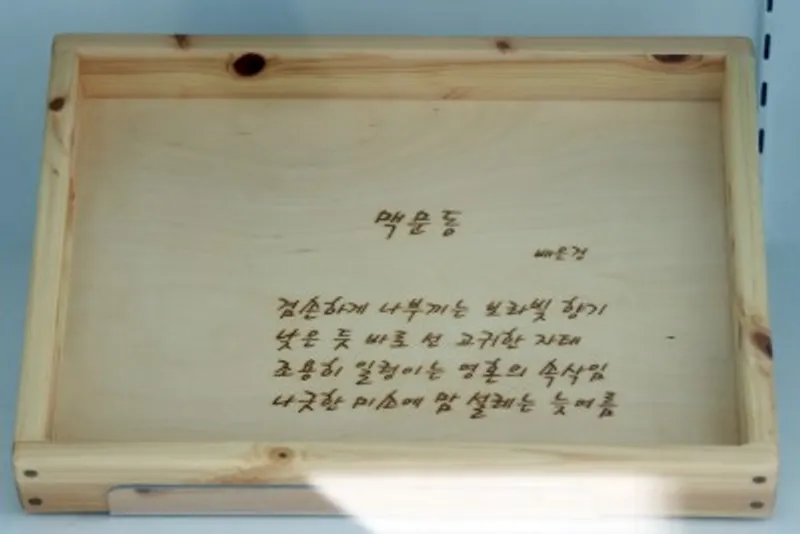 맥문동
배은경
겸손하게 나부끼는 보라빛 향기
낮은 듯 바로 선 고귀한 자태
조용히 일렁이는 영혼의 속삭임
나긋한 미소에 맘 설레는 늦여름